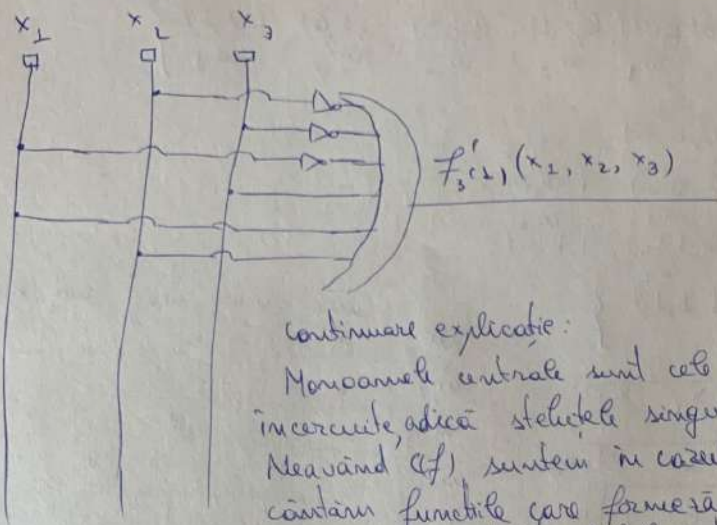 x1 x2 x3
f'3(1) (x1, x2, x3)
continuare explicație:
Monoamele centrale sunt cele
încercuite, adică steluțele singu
Neavând C(f), suntem în cazu
căutăm funcțiile care formeză